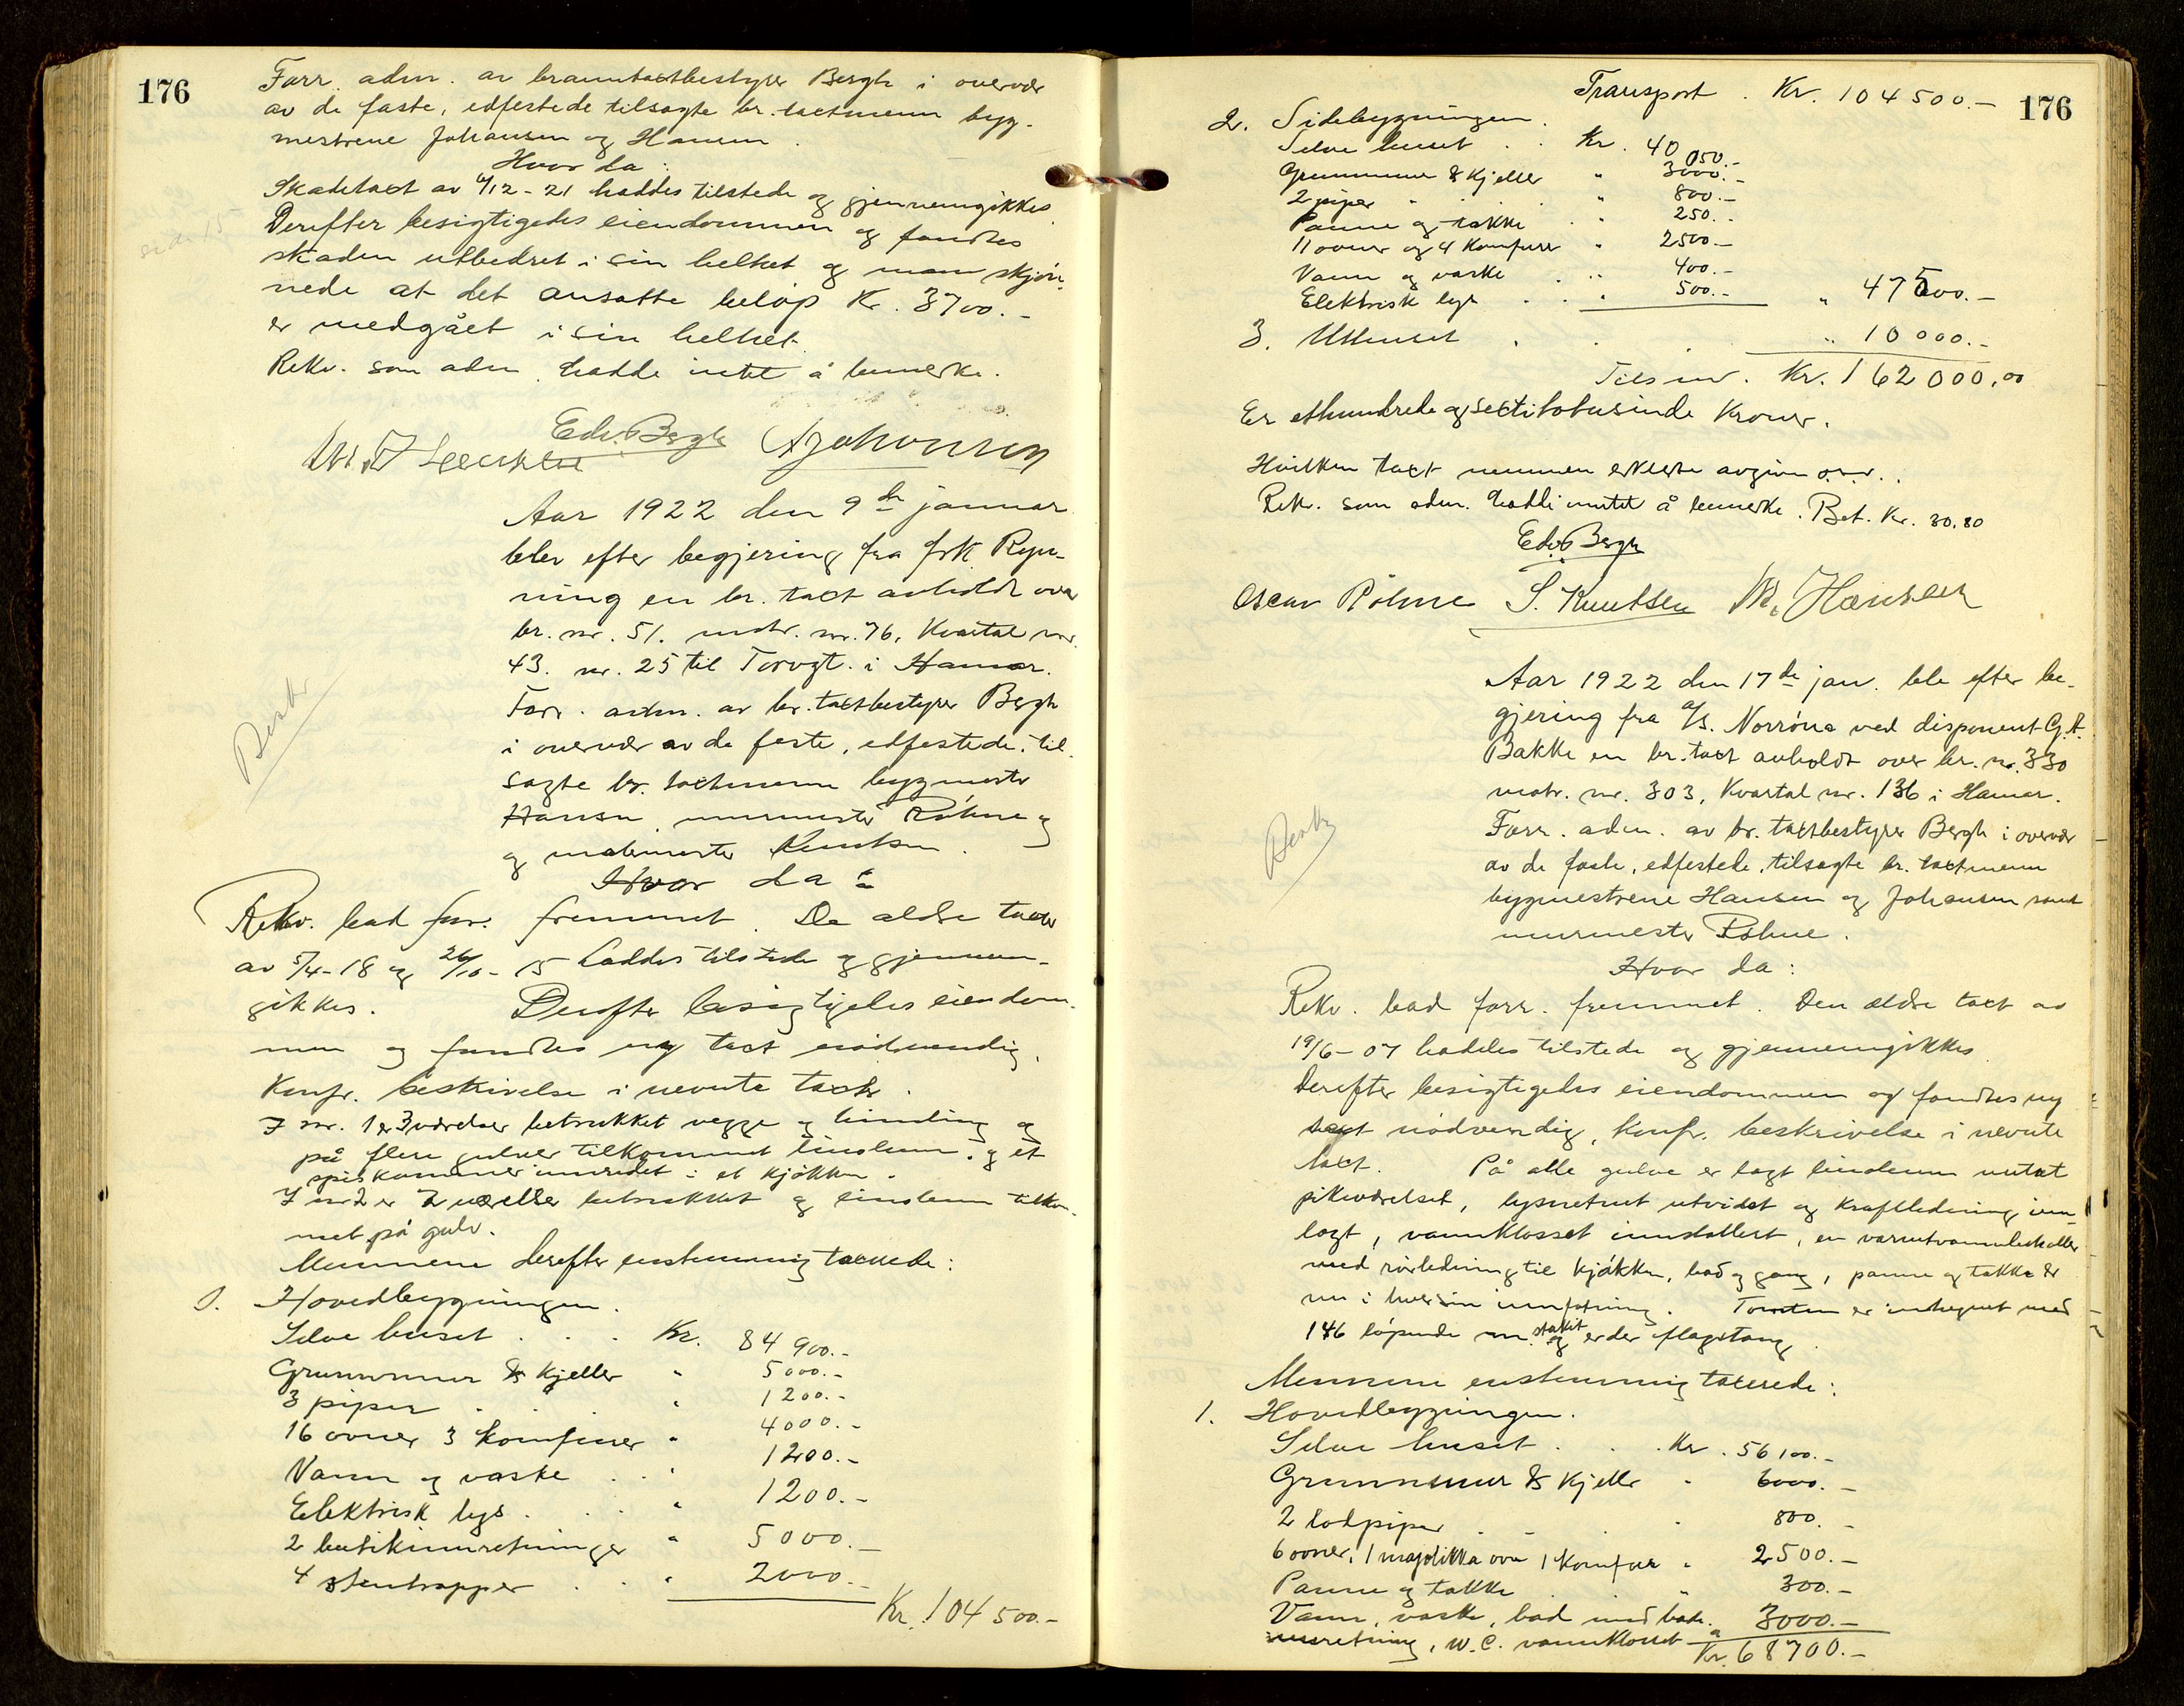 176
Forr. adm. av branntaxtbestyrer Bergh i overvær
av de faste, edfestede tilsagte br. taxtmenn byg-
mestrene Johansen og Hansen.
Hvor da:
Skadetaxt av 4/12-21 haddes tilstede og gjennemgikkes.
side 15
Derefter besigtigedes eiendommen og fandtes
skaden utbedret i sin helhet og man skjøn-
nede at det ansatte beløp Kr. 3700.-
er medgået i sin helhet.
Rekv. som adm. hadde intet å bemerke.
Edv. Bergh A Johansen
Aar 1922 den 9de januar
blev efter begjering fra frk. Ryn-
ning en br. taxt avholdt over
br. nr. 51. matr. nr. 76, Kvartal nr.
43. nr. 25 til Torvgt. i Hamar.
Forr. adm. av br. taxtbestyrer Bergh
i overvær av de faste, edfestede, til-
sagte br. taxtmenn bygmester
Hansen, murmester Röhne og
og malermester Knutsen.
Hvor da:
Rekv. bad forr. fremmet. De ældre taxter
av 5/4-18 og 26/10-15 haddes tilstede og gjennem-
gikkes. Derefter besigtigedes eiendom-
men og fandtes ny taxt nødvendig.
Konfr. beskrivelse i nevnte taxter.
I nr. 1 er 3 værelser betrukket vegge og himling og
på flere gulver tilkommet linoleum, og et
spiskammer innredet i et kjøkken.
I nr 2 er 2 værelser betrukket og linoleum tilkom-
met på gulv.
Mennene derefter enstemmig taxerede:
1. Hovedbygningen.
Selve huset . . . Kr. 84 900.-
Grunnmur & kjeller " 5000.-
3 piper . . . " 1200.-
16 ovner 3 komfurer " 4000.-
Vann og vaske . . " 1200.-
Elektrisk lys . . . " 1200.-
2 butikinnretninger " 5000.-
4 stentrapper . . " 2000.-
Kr. 104 500.-
176
Transport . Kr. 104500.-
2. Sidebygningen.
Selve huset . . Kr. 40 050.-
Grunnmur & kjeller " 3000.-
2 piper . . " 800.-
Panne og takke . " 250.-
11 ovner og 4 komfurer " 2500.-
Vann og vaske . " 400.-
Elektrisk lys . . " 500.- " 47500.-
3. Uthuset . . . " 10 000.-
Tilsmn. Kr. 162 000,00
Er ethundrede og sextitotusinde Kroner.
Hvilken taxt mennen erklærte avgiven o.s.v..
Rekv. som adm. hadde intet å bemerke. Bet. Kr. 30.80
Edv. Bergh
Oscar Röhne S. Knutsen M. Hansen
Aar 1922 den 17de jan. ble efter be-
gjering fra A/S. Norrøna ved disponent G. A.
Bakke en br. taxt avholdt over br. nr. 330
matr. nr. 303, Kvartal nr. 136 i Hamar.
Forr. adm. av br. taxtbestyrer Bergh i overvær
av de faste, edfestede, tilsagte br. taxtmenn
bygmestrene Hansen og Johansen samt
murmester Röhne.
Hvor da:
Rekv. bad forr. fremmet. Den ældre taxt av
19/6-07 haddes tilstede og gjennemgikkes.
Derefter besigtigedes eiendommen og fandtes ny
taxt nødvendig, konfr. beskrivelse i nevnte
taxt. På alle gulve er lagt linoleum untat
pikeværelset, lysnettet utvidet og kraftledning inn-
lagt, vannklosset innstallert, en varmtvannbeholder
med rørledning til kjøkken, bad og gang, panne og takke er
nu i hver sin innfatning. Tomten er innhegnet med
146 løpende m. stakit og er der flagstang.
Mennene enstemmig taxerede:
1. Hovedbygningen.
Selve huset . . . Kr. 56 100.-
Grunnmur & kjeller " 6000.-
2 lodpiper . . . " 800.-
6 ovner, 1 majolikka ovn 1 komfur " 2500.-
Panne og takke . " 300.-
Vann, vask, bad med bade- " 3000.-
innretning, W.C. vannklosset
Kr. 68700.-